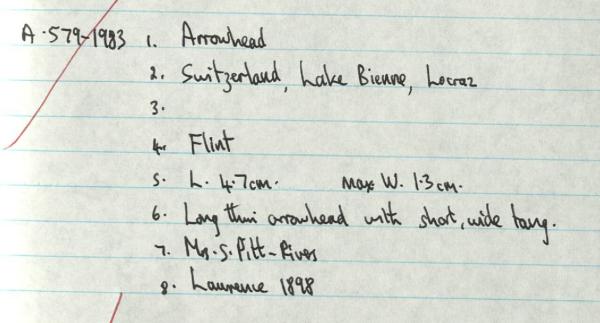 A·579-1983 1. Arrowhead
2. Switzerland, Lake Bienne, Locraz
3.
4. Flint
5. L. 4.7cm. Max W. 1.3cm.
6. Long thin arrowhead with short, wide tang.
7. Mrs. S. Pitt-Rivers
8. Lawrence 1898